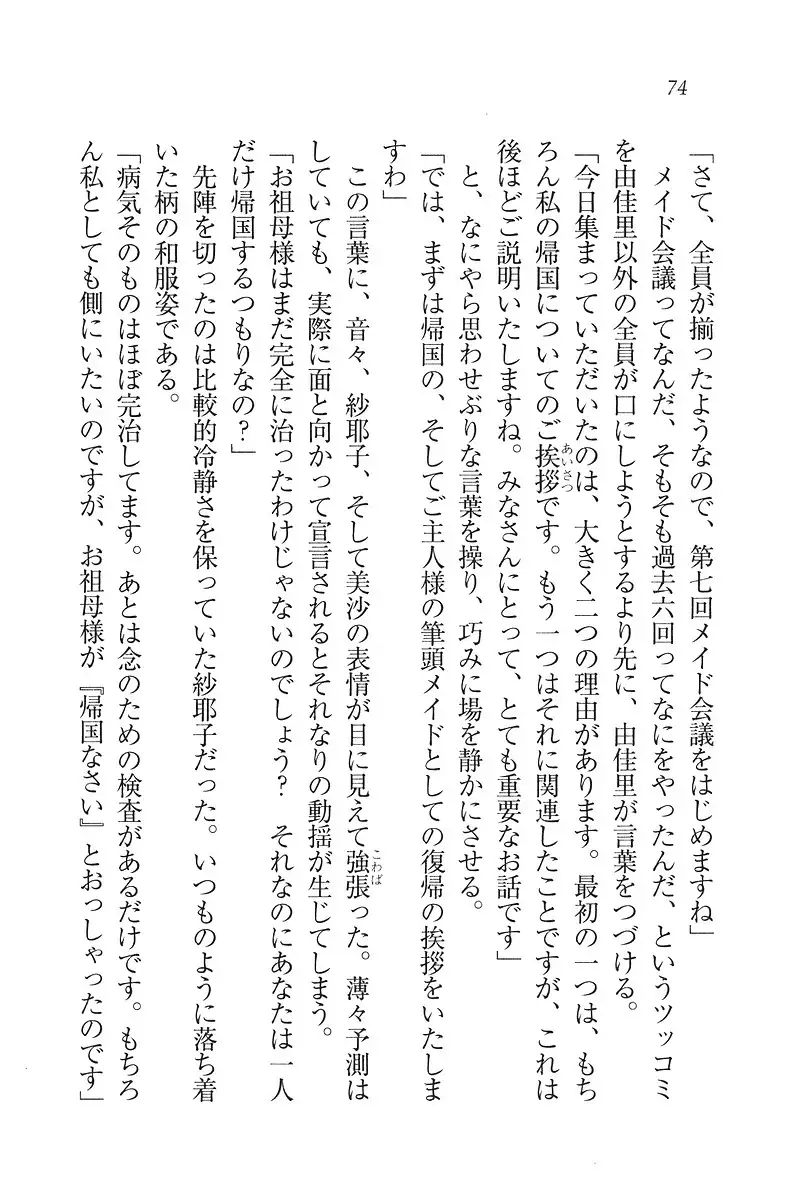 74
「さて、全員が揃ったようなので、第七回メイド会議をはじめますね」
メイド会議ってなんだ、そもそも過去六回ってなにをやったんだ、というツッコミ
を由佳里以外の全員が口にしようとするより先に、由佳里が言葉をつづける。
「今日集まっていただいたのは、大きく二つの理由があります。最初の一つは、もち
ろん私の帰国についてのご挨拶です。もう一つはそれに関連したことですが、これは
後ほどご説明いたしますね。みなさんにとって、とても重要なお話です」
と、なにやら思わせぶりな言葉を操り、巧みに場を静かにさせる。
「では、まずは帰国の、そしてご主人様の筆頭メイドとしての復帰の挨拶をいたしま
すわ」
この言葉に、音々、紗耶子、そして美沙の表情が目に見えて強張った。薄々予測は
していても、実際に面と向かって宣言されるとそれなりの動揺が生じてしまう。
「お祖母様はまだ完全に治ったわけじゃないのでしょう？　それなのにあなたは一人
だけ帰国するつもりなの？」
先陣を切ったのは比較的冷静さを保っていた紗耶子だった。いつものように落ち着
いた柄の和服姿である。
「病気そのものはほぼ完治してます。あとは念のための検査があるだけです。もちろ
ん私としても側にいたいのですが、お祖母様が『帰国なさい』とおっしゃったのです」
あいさつ
こわば